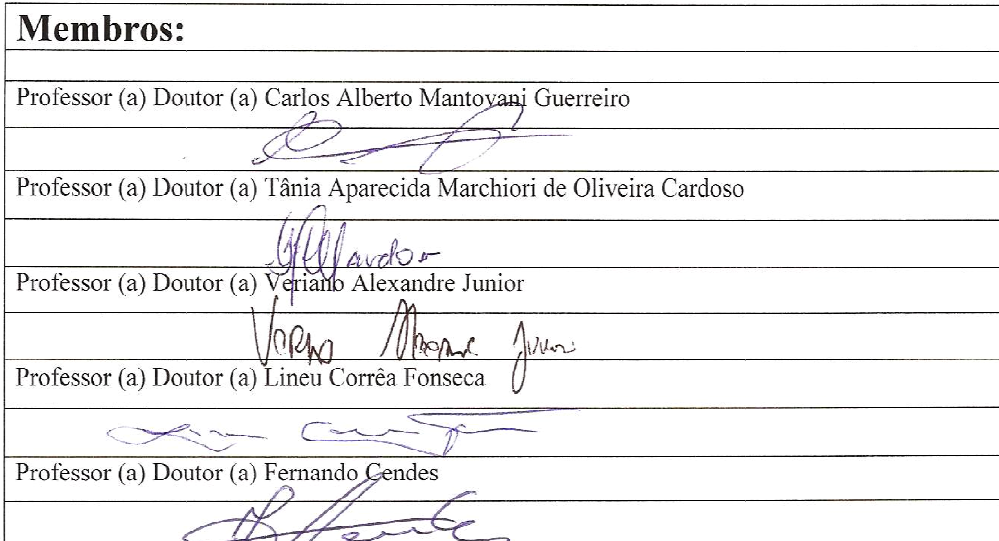 Membros:
Professor (a) Doutor (a) Carlos Alberto Mantovani Guerreiro
Professor (a) Doutor (a) Tânia Aparecida Marchiori de Oliveira Cardoso
Professor (a) Doutor (a) Veriano Alexandre Junior
Professor (a) Doutor (a) Lineu Corrêa Fonseca
Professor (a) Doutor (a) Fernando Cendes